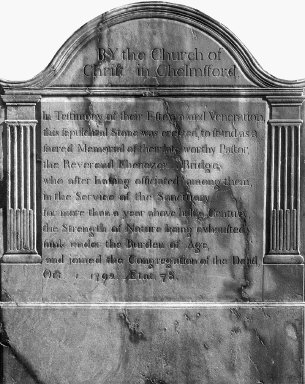 BY the Church of
Christ in Chelmsford
In Testimony of their Esteem and Veneration
this sepulchral Stone was erected, to stand as a
sacred Memorial of their late worthy Pastor,
the Reverend Ebenezer Bridge,
who after having officiated among them,
in the Service of the Sanctuary
for more than a year above half a Century,
the Strength of Nature being exhausted,
sunk under the Burden of Age,
and joined the Congregation of the Dead
Oct. 1792. Ætat. 78.